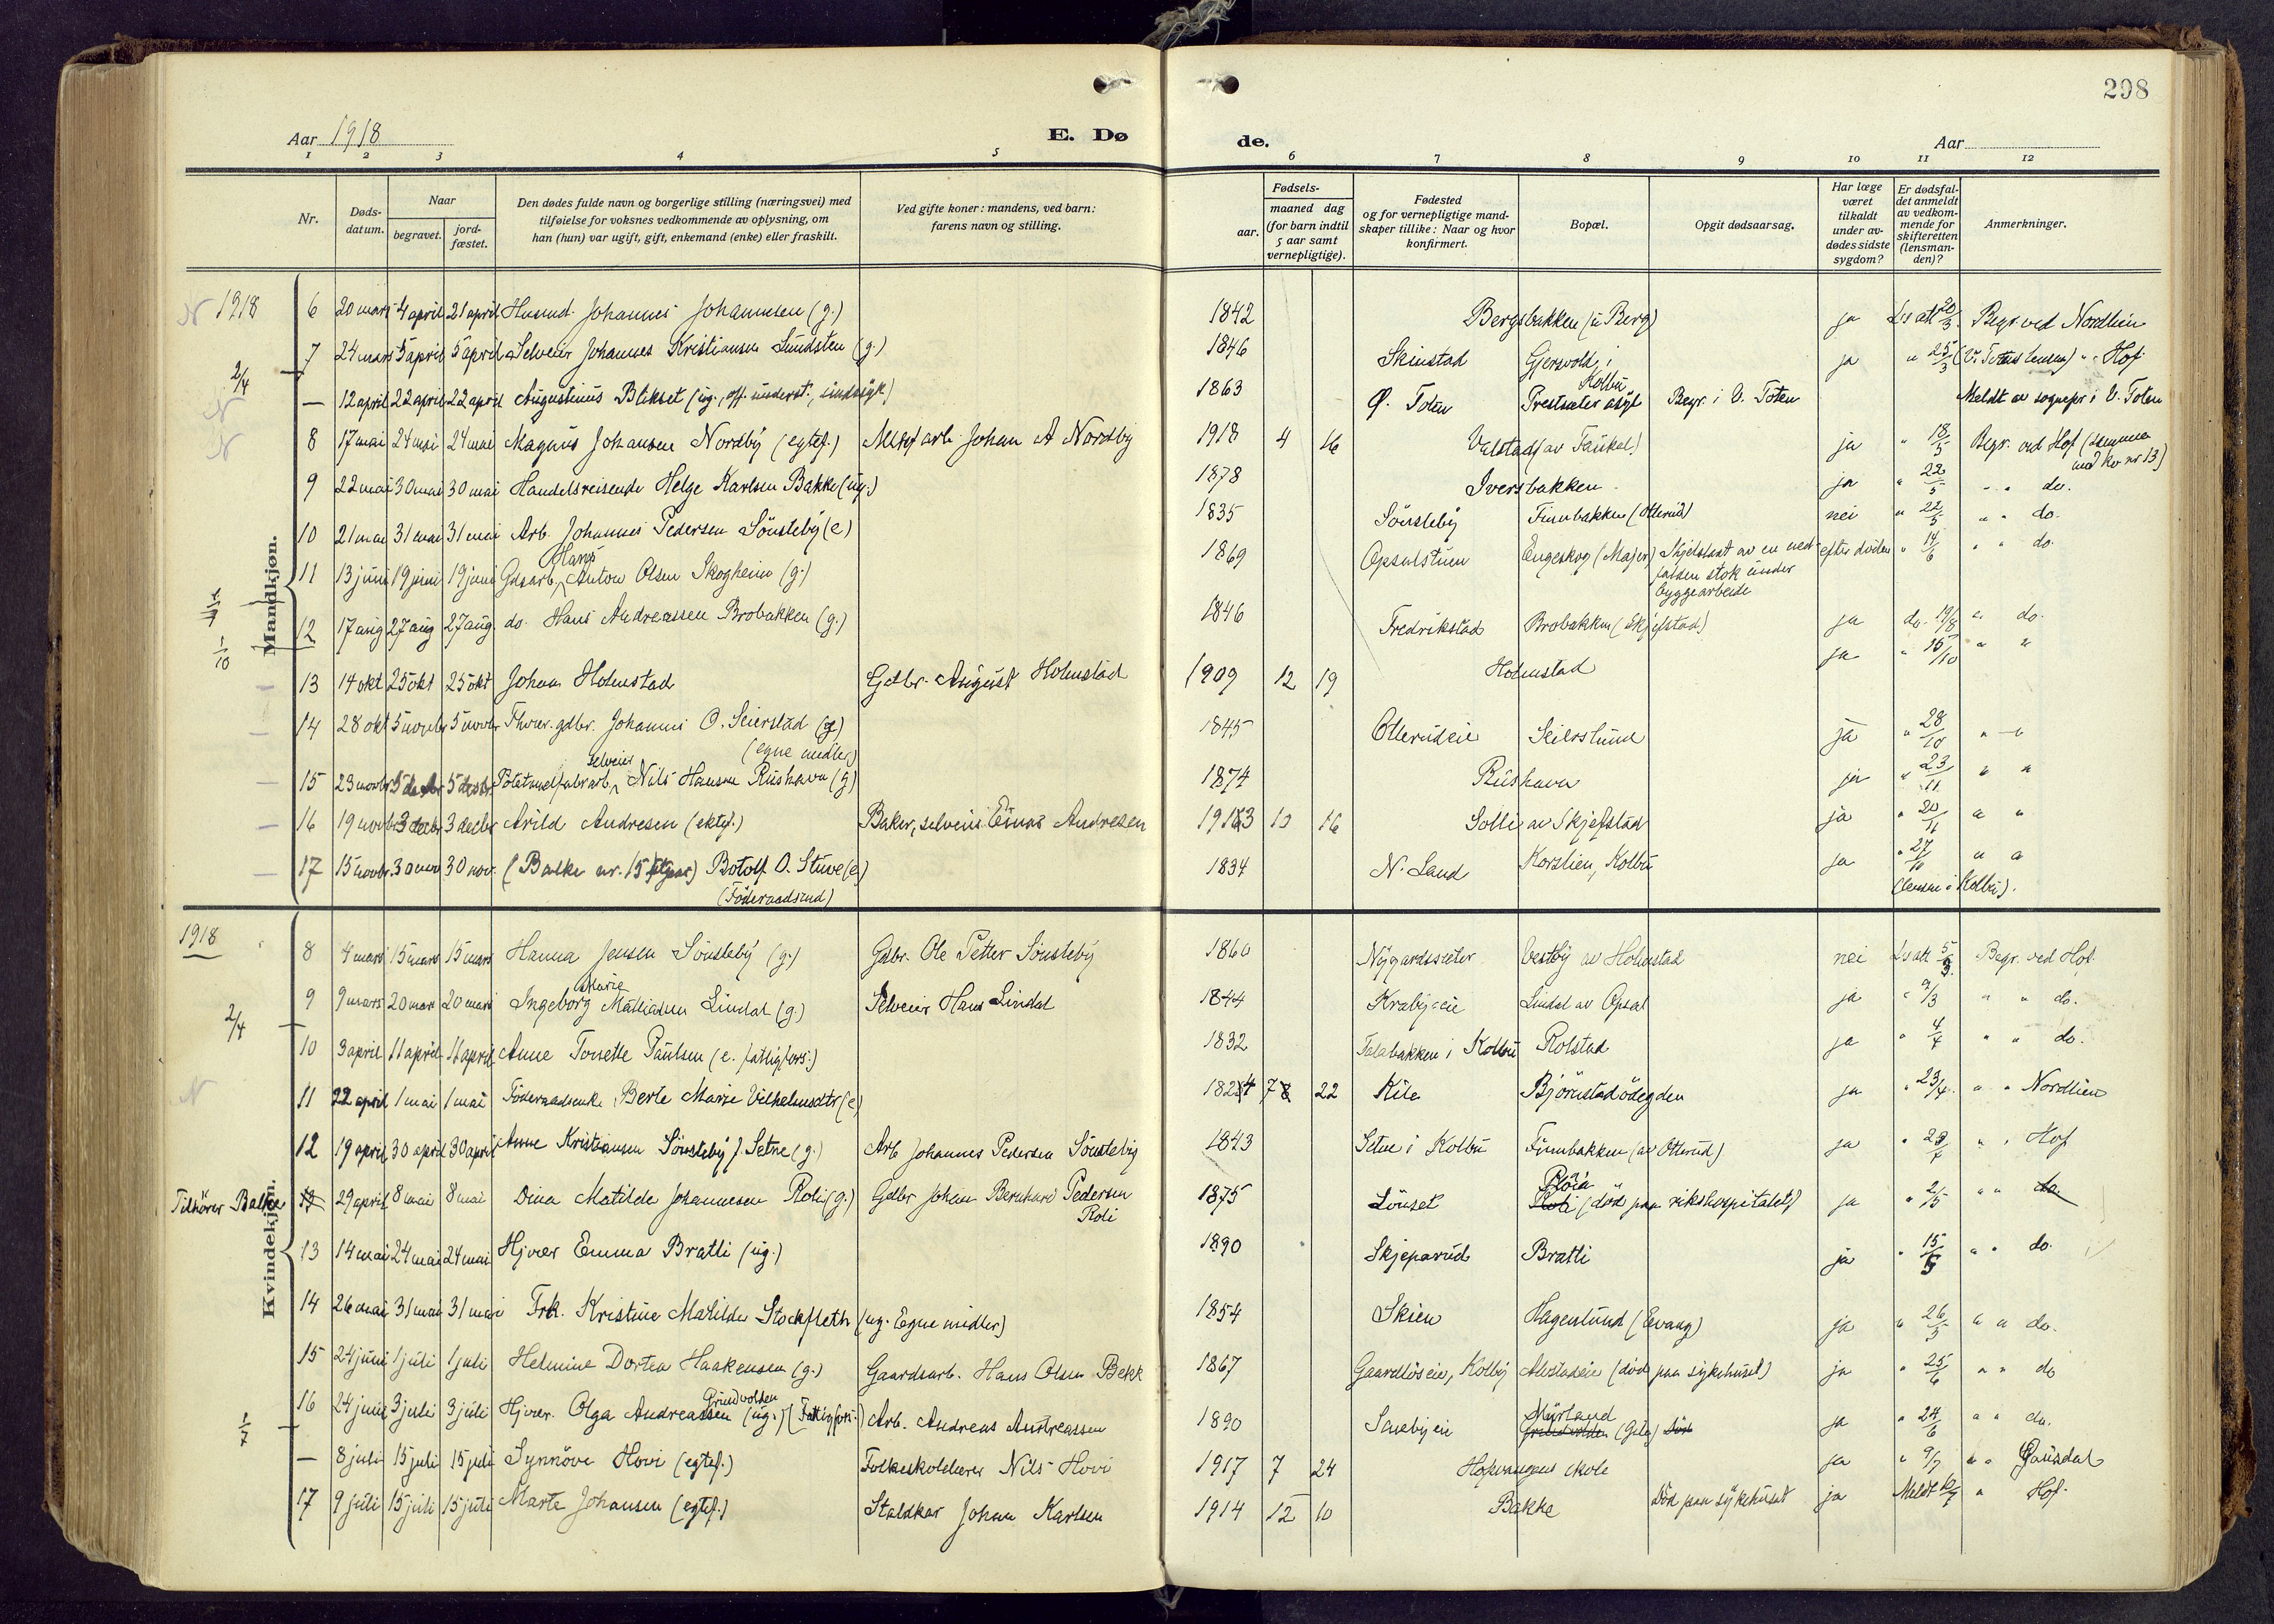 208
Aar 1918
E. Dø
de.
Aar
1 2 3 4 5 6 7 8 9 10 11 12
Nr.
Døds-
datum.
Naar
begravet.
jord-
fæstet.
Den dødes fulde navn og borgerlige stilling (næringsvei) med
tilføielse for voksnes vedkommende av oplysning, om
han (hun) var ugift, gift, enkemand (enke) eller fraskilt.
Ved gifte koner: mandens, ved barn:
farens navn og stilling.
Fødsels-
aar.
maaned dag
(for barn indtil
5 aar samt
vernepligtige).
Fødested
og for vernepligtige mand-
skaper tillike: Naar og hvor
konfirmert.
Bopæl.
Opgit dødsaarsag.
Har læge
været
tilkaldt
under av-
dødes sidste
sygdom?
Er dødsfal-
det anmeldt
av vedkom-
mende for
skifteretten
(lensman-
den)?
Anmerkninger.
Mandkjøn.
N 1918 6 20 mars 4 april 21 april Husmd. Johannes Johannesen (g.) 1842 Bergsbakken (u Berg) ja Ls att 20/3 Begr. ved Nordlien
7 24 mars 5 april 5 april Selveier Johannes Kristiansen Lundsten (g.) 1846 Skinstad Gjersvold, i Kolbu ja " 25/3 (V. Totens lensm) " " Hof
2/4
N — 12 april 22 april 22 april Augustinus Blikset (ug., off. underst., sindssyk) 1863 Ø. Toten Prestsæter asyl Begr. i V. Toten Meldt av sognepr i V. Toten
N 8 17 mai 24 mai 24 mai Magnus Johansen Nordby (egtef.) arb. Johan A Nordby 1918 4 16 Valstad (av Faukal) ja " 18/5 Begr. ved Hof (samme med kv nr 13)
9 22 mai 30 mai 30 mai Handelsreisende Helge Karlsen Bakke (ug.) 1878 Iversbakken ja " 22/5 " " do.
10 21 mai 31 mai 31 mai Arb. Johannes Pedersen Sönsteby (e) 1835 Sönsteby Finnbakken (Otterud) nei " 22/5 " " do.
11 13 juni 19 juni 19 juni Gdsarb. Hans Anton Olsen Skogheim (g.) 1869 Opsalstuen Engeskog (Majer) ihjelslaat av en ned-
falden stok under
byggearbeide efter döden " 14/6 " " do.
12 17 aug 27 aug 27 aug. do. Hans Andreassen Brobakken (g.) 1846 Fredrikstad Brobakken (Skjefstad) ja do. 19/8 " do.
1/10
13 14 okt 25 okt 25 okt Johan Holmstad Gdbr. August Holmstad 1909 12 19 Holmstad ja " 15/10 " "
14 28 okt 5 novbr 5 novbr Fhvær. gdbr. Johannes O. Seierstad (g)
(egne midler) 1845 Otterudeie Seierslund ja " 28/10 " "
15 23 novbr 5 decbr 5 decbr. Potetmelfabr.arb., selveier Nils Hansen Rushavn (g) 1874 Rushavn ja " 23/11 " "
16 19 novbr 3 decbr 3 decbr Arild Andresen (ektef.) Baker, selveier Einar Andresen 1913 10 16 Solli av Skjefstad ja " 20/11 " "
17 15 novbr. 30 nov 30 nov. (Balke nr. 15) Botolf O. Stuve (e)
(Föderaadsmd) 1834 N. Land Korslien, Kolbu ja " 27/11 " "
(lensm i Kolbu).
Kvindekjøn.
1918 8 4 mars 15 mars 15 mars Hanna Jensen Sönsteby (g.) Gdbr. Ole Petter Sönsteby 1860 Nygardssæter Vestby av Holmstad nei Ls att 5/3. Begr. ved Hof.
9 9 mars 20 mars 20 mars Ingeborg Marie Mathiasen Lindal (g.) Selveier Hans Lindal 1844 Krabyeie Lindal av Opsal ja " 9/3 " " do.
2/4
10 3 april 11 april 11 april Anne Tonette Paulsen (e. fattigfors.) 1832 Falabakken i Kolbu Rolstad ja " 4/4 " " do.
N 11 22 april 1 mai 1 mai Föderaadsenke Berte Marie Vilhelmsdtr (e) 1824 7 22 Kile Björnstadödegden ja " 23/4. " " Nordlien
12 19 april 30 april 30 april Anne Kristiansen Sönsteby f. Setne (g.) Arb. Johannes Pedersen Sönsteby 1843 Setne i Kolbu Finnbakken (av Otterud) ja " 23/4 " " Hof
Tilhörer Balke 13 29 april 8 mai 8 mai Dina Matilde Johannesen Roli (g.) Gdbr Johan Bernhard Pedersen
Roli 1875 Lönset Roli (död paa rikshospitalet) ja " 2/5 " " do
13 14 mai 24 mai 24 mai Hjvær Emma Bratli (ug.) 1890 Skjeparud Bratli ja " 15/5 " " do.
14 26 mai 31 mai 31 mai Frk. Kristine Mathilde Stockfleth (ug. Egne midler) 1854 Skien Hagenlund (Evang) ja " 26/5 " " do.
15 24 juni 1 juli 1 juli Helmine Dortea Haakensen (g.) Gaardsarb. Hans Olsen Bekk 1867 Gaardlöseie, Kolby Alvstadeie (död paa sykehuset) ja " 25/6 " " do
16 24 juni 3 juli 3 juli Hjvær. Olga Andreassen Grindvolden (ug.) (Fattigfors.) Arb. Andreas Andreassen 1890 Smebyeie Myrland (Gile) ja " 24/6 " " do.
1/7
— 8 juli 15 juli 15 juli Synnöve Hovi (egtef.) Folkeskolelærer Nils Hovi 1917 7 24 Hofvangens skole ja " 9/7 " " Gausdal
17 9 juli 15 juli 15 juli Marte Johansen (egtef.) Staldkar Johan Karlsen 1914 12 10 Bakke Död paa sykehuset ja Meldt 10/7 " Hof.